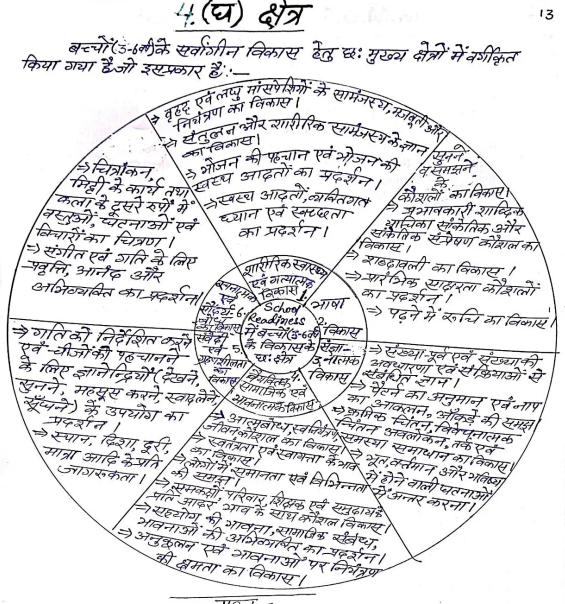 4. (घ) क्षेत्र
13
बच्चों (3-6 वर्ष) के सर्वांगीन विकास हेतु छः मुख्य क्षेत्रों में वर्गीकृत
किया गया है जो इसप्रकार है :—
⇒ वृहद् एवं लघु मांसपेशियों के सामंजस्य, मजबूती और
नियंत्रण का विकास।
⇒ संतुलन और शारीरिक सामंजस्य के ज्ञान
का विकास।
⇒ भोजन की पहचान एवं भोजन की
स्वस्थ आदतों का प्रदर्शन।
⇒ स्वस्थ आदतों, व्यक्तिगत
ध्यान एवं स्वच्छता
का प्रदर्शन।
⇒ सुनने
व समझने
के
कौशलों का विकास।
⇒ प्रभावकारी शाब्दिक
वाचिका सांकेतिक और
सांकेतिक संप्रेषण कौशल का
विकास।
⇒ शब्दावली का विकास।
⇒ प्रारंभिक साक्षरता कौशलों
का प्रदर्शन।
⇒ पढ़ने में रुचि का विकास।
⇒ संख्या पूर्व एवं संख्या की
अवधारणा एवं संक्रियाओं से
संबंधित ज्ञान।
⇒ पैटर्न का अनुमान एवं नाप
का आकलन, आँकड़े की समझ।
⇒ क्रमिक चिंतन, विश्लेषणात्मक
चिंतन अवलोकन, तर्क एवं
समस्या समाधान का विकास।
⇒ भूत, वर्तमान और भविष्य
में होने वाली घटनाओं
में अन्तर करना।
⇒ आत्मबोध, स्वनियंत्रण,
जीवन कौशल का विकास।
⇒ स्वतंत्रता एवं स्वायत्ता के भाव
⇒ लोगों में समानता एवं विभिन्नता
की समझ।
⇒ समकक्षी, परिवार, शिक्षक एवं समुदाय के
प्रति आदर भाव के साथ कौशल विकास।
⇒ सहयोग की भावना, सामाजिक संबंध,
भावनाओं की अभिव्यक्ति का प्रदर्शन।
⇒ अनुकूलन एवं भावनाओं पर नियंत्रण
की क्षमता का विकास।
⇒ गति को निर्देशित करने
एवं चीजों को पहचानने
के लिए ज्ञानेन्द्रियों (देखने,
सुनने, महसूस करने, स्वाद लेने
सूँघने) के उपयोग का
प्रदर्शन।
⇒ स्थान, दिशा, दूरी,
मात्रा आदि के प्रति
जागरूकता।
⇒ चित्रांकन,
मिट्टी के कार्य तथा
कला के दूसरे रूपों में
वस्तुओं, घटनाओं एवं
विचारों का चित्रण।
⇒ संगीत एवं गति के लिए
प्रवृत्ति, आनंद और
अभिव्यक्ति का प्रदर्शन।
शारीरिक स्वास्थ्य
एवं गत्यात्मक
विकास 1.
भाषा
2. विकास
3. संज्ञानात्मक
विकास
4.
सामाजिक एवं
भावनात्मक विकास
5.
6.
School
Readiness
में बच्चों (3-6 वर्ष)
के विकास के
छः क्षेत्र